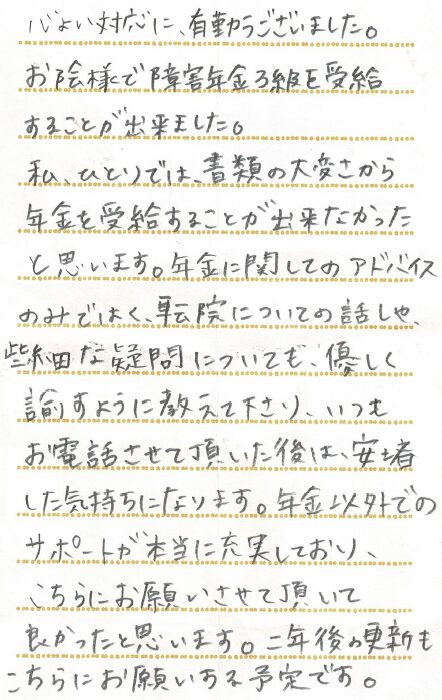 心よい対応に、有難うございました。
お陰様で障害年金3級を受給
することが出来ました。
私、ひとりでは、書類の大変さから
年金を受給することが出来なかった
と思います。年金に関してのアドバイス
のみではく、転院についての話しや、
些細な疑問についても、優しく
諭すように教えて下さり、いつも
お電話させて頂いた後は、安堵
した気持ちになります。年金以外での
サポートが本当に充実しており、
こちらにお願いさせて頂いて
良かったと思います。二年後の更新も
こちらにお願いする予定です。